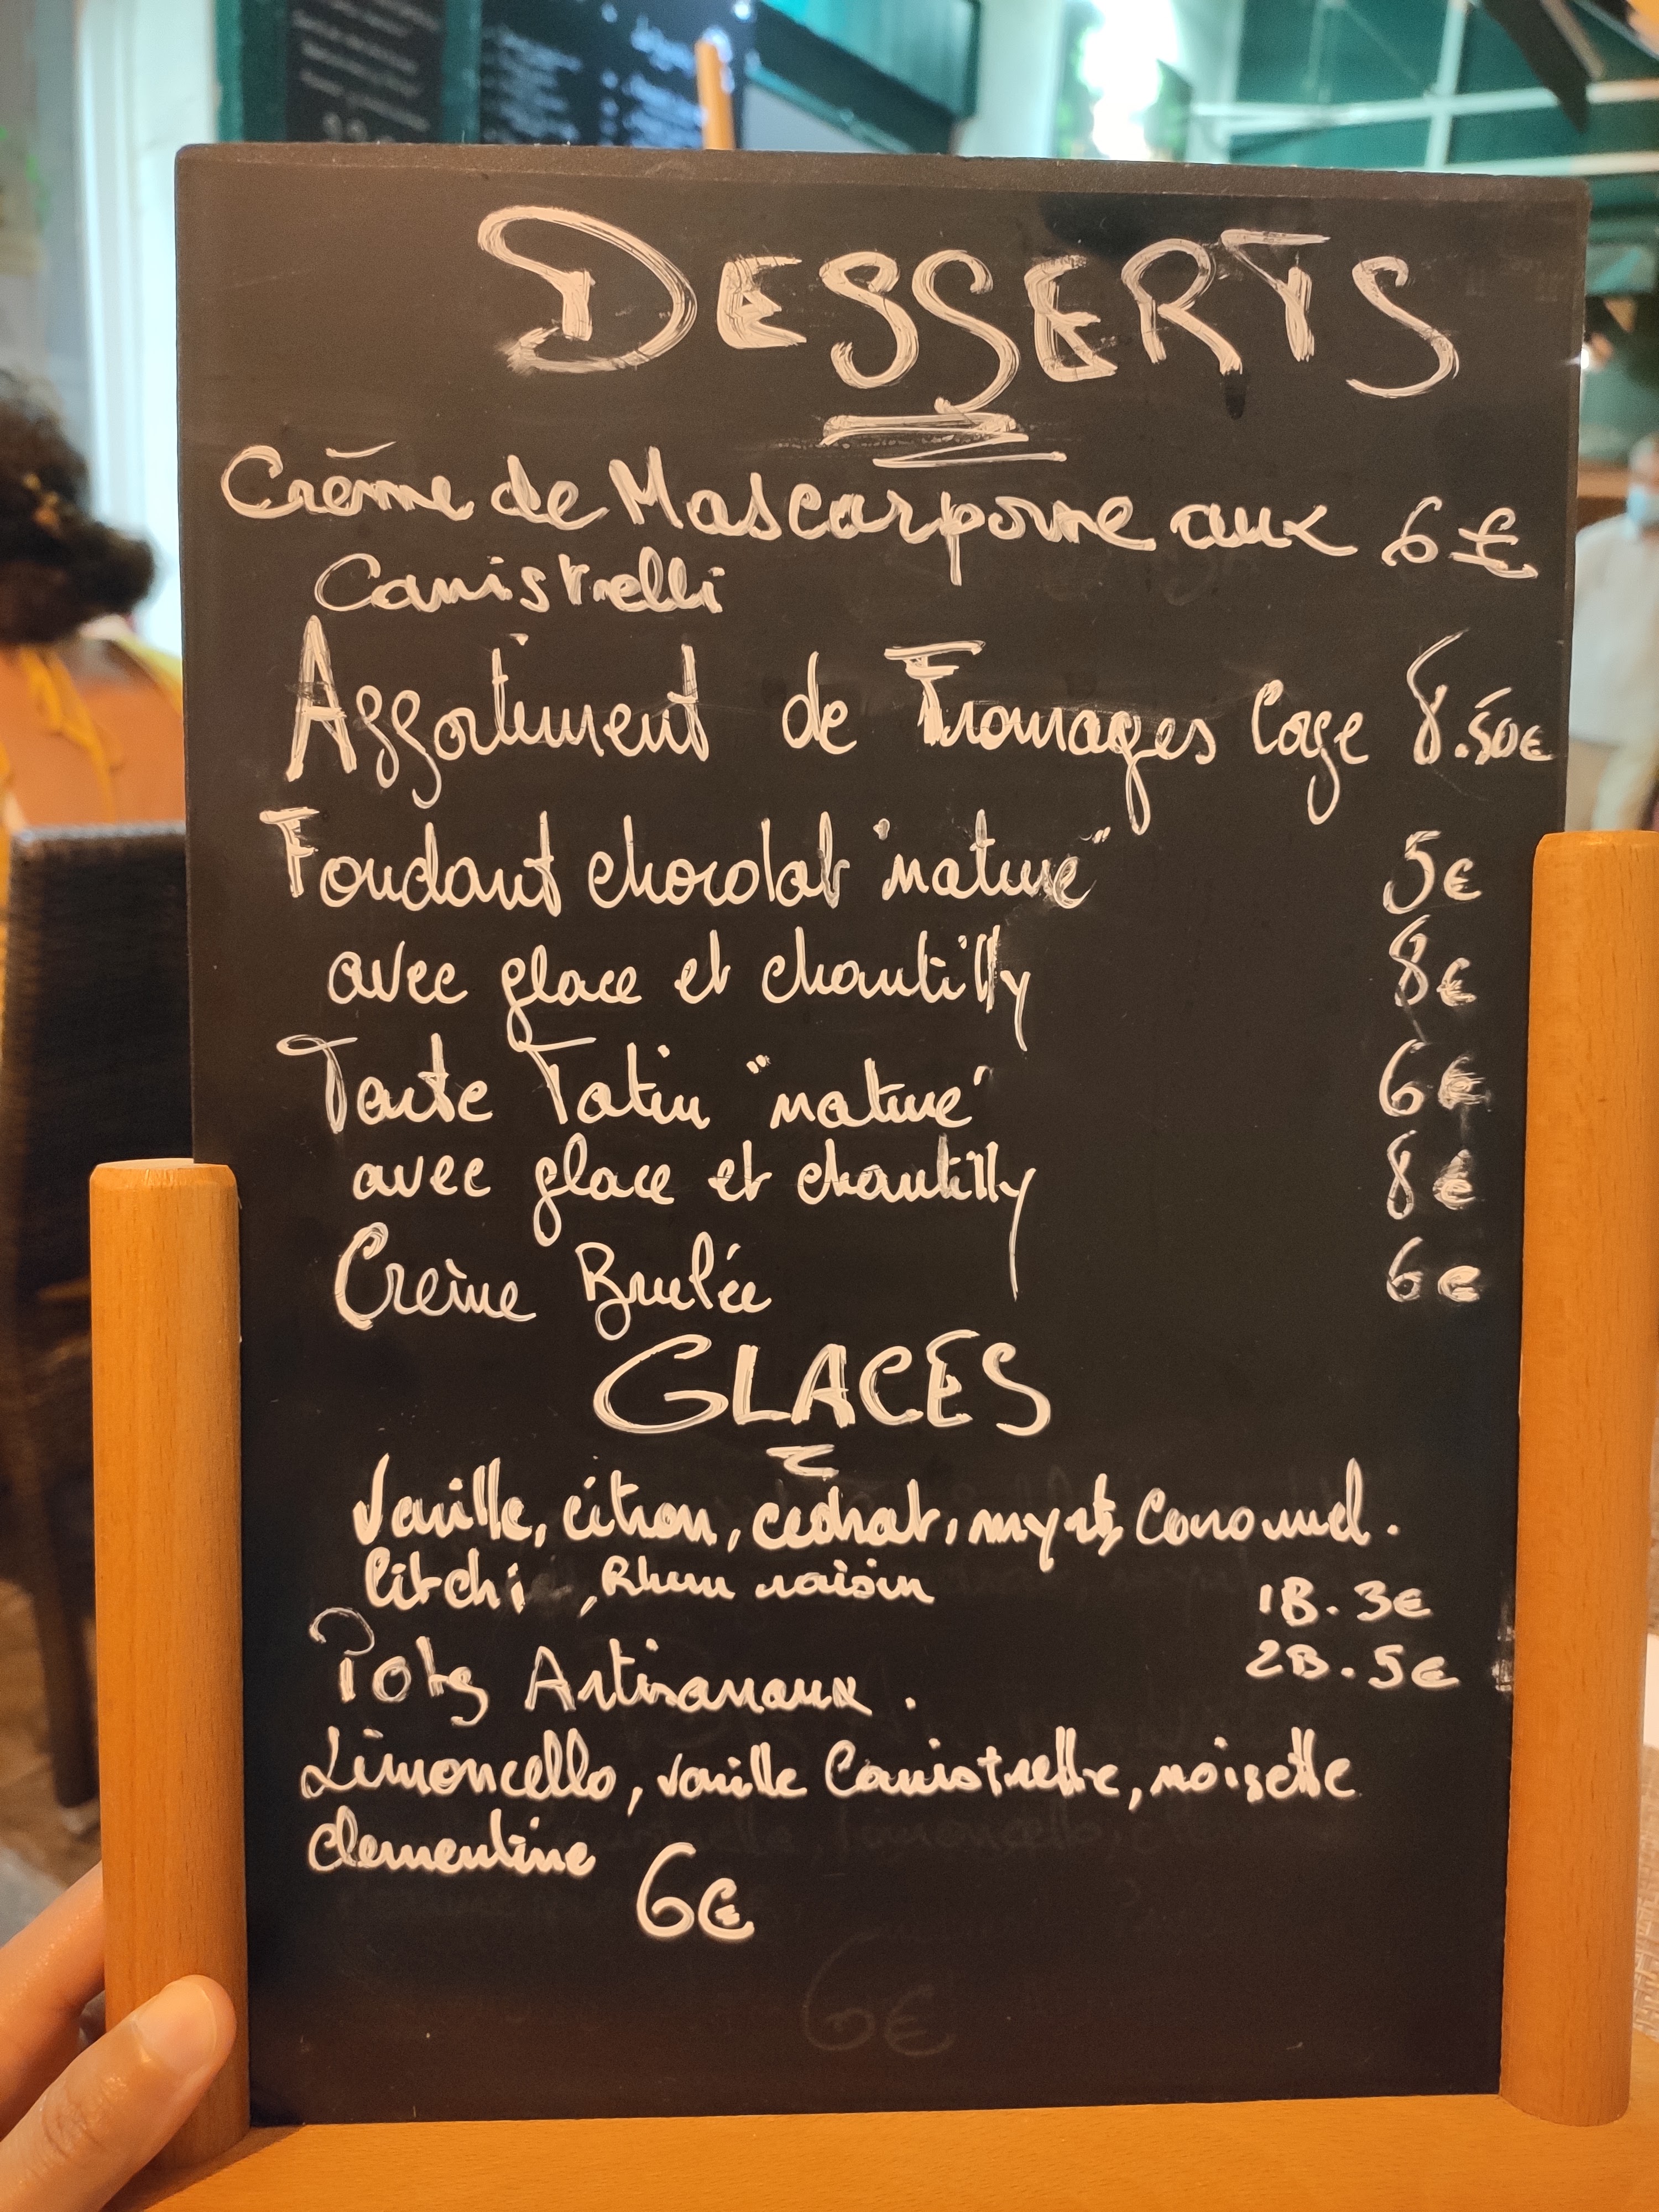 DESSERTS
Crème de Mascarpone aux 6€
Canistrelli
Assortiment de Fromages Corse 8.50€
Fondant chocolat "nature" 5€
avec glace et chantilly 8€
Tarte Tatin "nature" 6€
avec glace et chantilly 8€
Crème Brulée 6€
GLACES
Vanille, citron, cedrat, myrte, Caramel.
litchi, Rhum raisin 1B. 3€
2B. 5€
Pots Artisanaux.
Limoncello, vanille Canistrelle, noisette
clementine
6€
6€